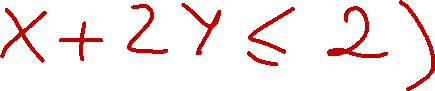 X+2Y≤2)